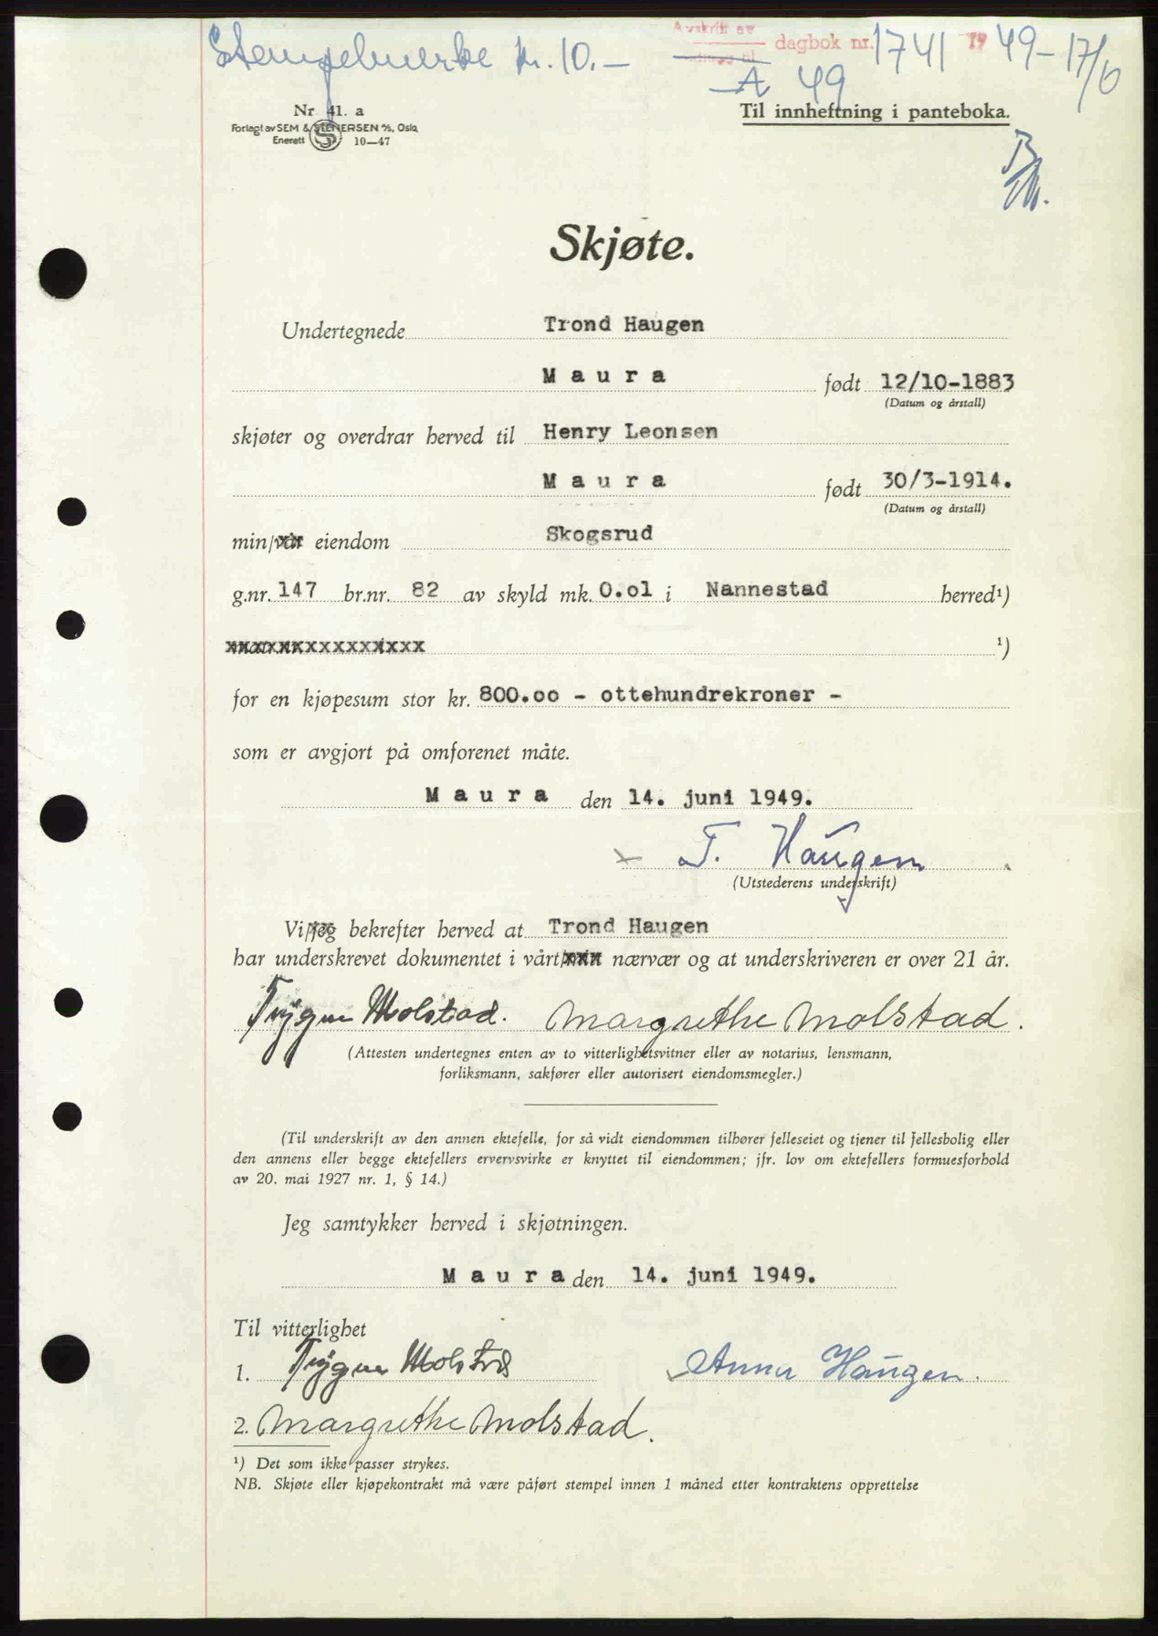 Stempelmerke kr. 10.—
Avskrift av dagbok nr. 1741 19 49 - 17/6
A 49
Nr 41. a
Forlagt av SEM & STENERSEN A/S, Oslo
Enerett S 10—47
Til innheftning i panteboka.
Skjøte.
Undertegnede Trond Haugen
Maura født 12/10-1883
(Datum og årstall)
skjøter og overdrar herved til Henry Leonsen
Maura født 30/3-1914.
(Datum og årstall)
min/vår eiendom Skogsrud
g.nr. 147 br.nr. 82 av skyld mk. 0.01 i Nannestad herred¹)
xxxxxxxxxxxxxxx ¹)
for en kjøpesum stor kr. 800.00 - ottehundrekroner -
som er avgjort på omforenet måte.
Maura den 14. juni 1949.
T. Haugen
(Utstederens underskrift)
Vi/jeg bekrefter herved at Trond Haugen
har underskrevet dokumentet i vårt/xxx nærvær og at underskriveren er over 21 år.
Trygve Molstad. Margrethe Molstad.
(Attesten undertegnes enten av to vitterlighetsvitner eller av notarius, lensmann,
forliksmann, sakfører eller autorisert eiendomsmegler.)
(Til underskrift av den annen ektefelle, for så vidt eiendommen tilhører felleseiet og tjener til fellesbolig eller
den annens eller begge ektefellers ervervsvirke er knyttet til eiendommen; jfr. lov om ektefellers formuesforhold
av 20. mai 1927 nr. 1, § 14.)
Jeg samtykker herved i skjøtningen.
Maura den 14. juni 1949.
Til vitterlighet
1. Trygve Molstad Anna Haugen.
2. Margrethe Molstad.
¹) Det som ikke passer strykes.
NB. Skjøte eller kjøpekontrakt må være påført stempel innen 1 måned etter kontraktens opprettelse